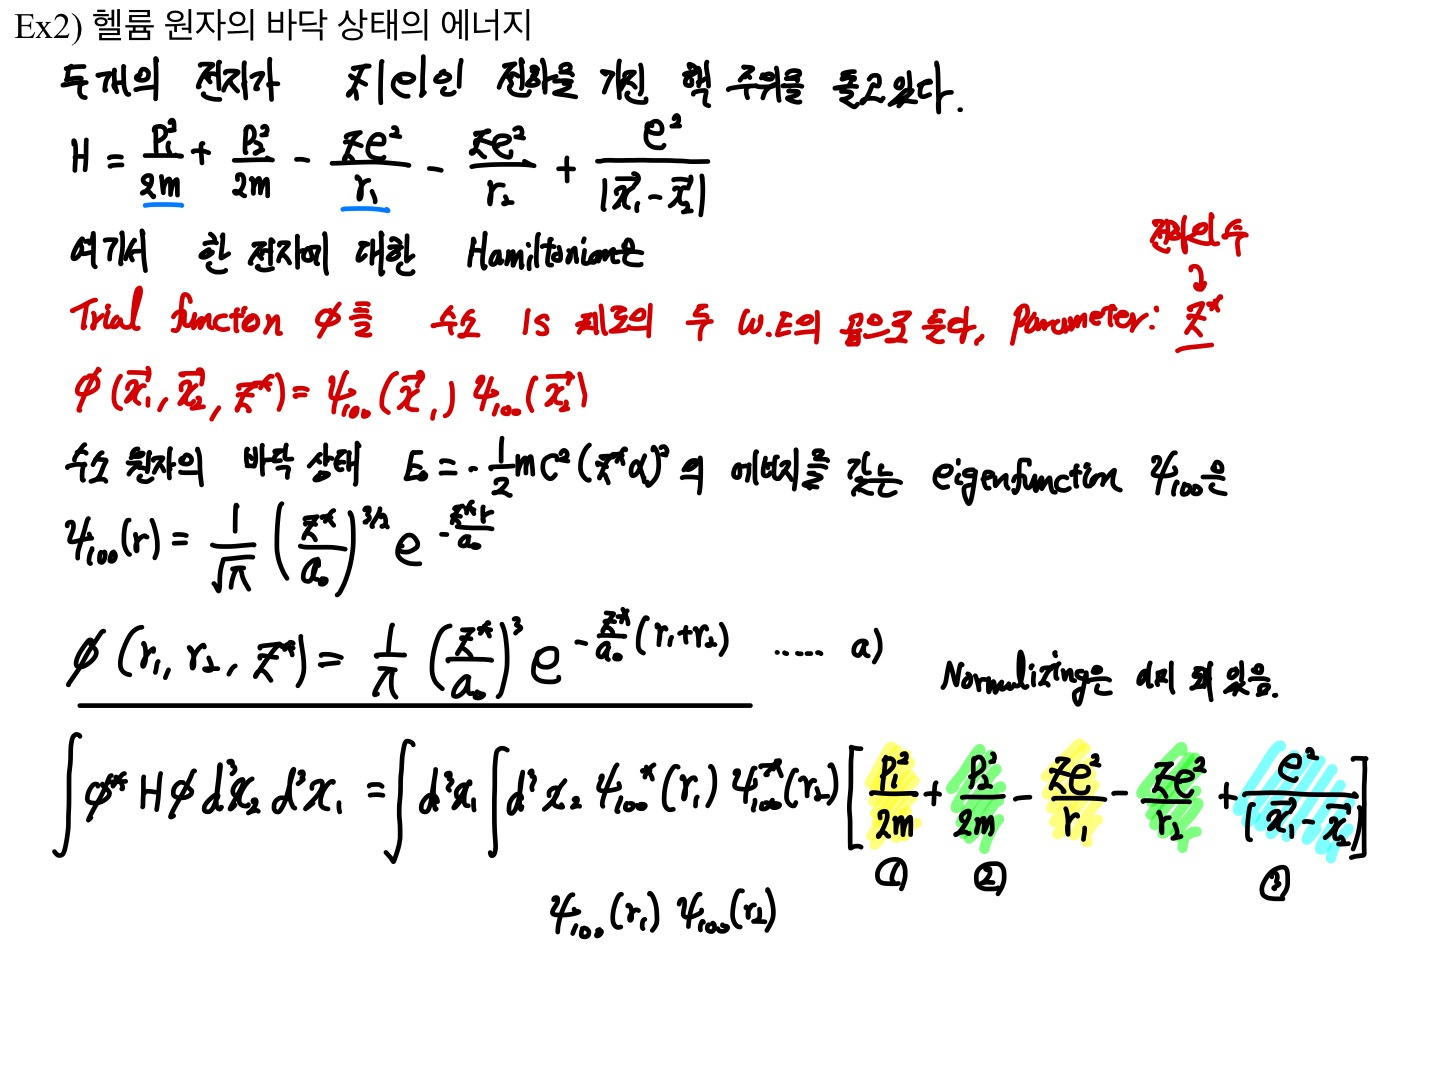 Ex2) 헬륨 원자의 바닥 상태의 에너지
두 개의 전자가 Z|e|인 전하를 가진 핵 주위를 돌고있다.
H = P₁²/2m + P₂²/2m - Ze²/r₁ - Ze²/r₂ + e²/|x⃗₁-x⃗₂|
여기서 한 전자에 대한 Hamiltonian은
Trial function ϕ를 수소 1s 궤도의 두 W.F의 곱으로 둔다, Parameter: Z*
ϕ(x⃗₁, x⃗₂, Z*) = ψ₁₀₀(x⃗₁) ψ₁₀₀(x⃗₂)
수소 원자의 바닥 상태 E₀ = -1/2 mc²(Z*α)²의 에너지를 갖는 eigenfunction ψ₁₀₀은
ψ₁₀₀(r) = 1/√π (Z*/a₀)^3/2 e^-Z*r/a₀
ϕ(r₁, r₂, Z*) = 1/π (Z*/a₀)³ e^-Z*/a₀(r₁+r₂) ...... a)
Normalizing은 이미 돼 있음.
∫ϕ* H ϕ d³x₂ d³x₁ = ∫d³x₁ ∫d³x₂ ψ₁₀₀*(r₁) ψ₁₀₀*(r₂) [P₁²/2m + P₂²/2m - Ze²/r₁ - Ze²/r₂ + e²/|x⃗₁-x⃗₂|]
① ② ③
ψ₁₀₀(r₁) ψ₁₀₀(r₂)